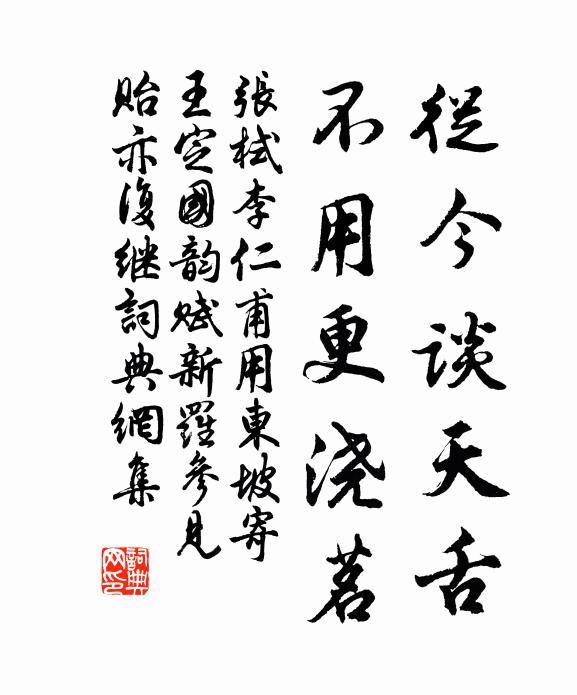 從今談天舌
不用更浇茗
張栻李仁甫用東坡寄
王定國韵赋新羅參見
貽亦復継詞典網集
詞典
网印